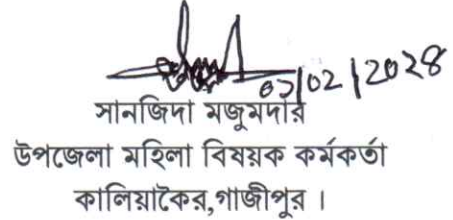 ০১/০২/২০২৪
সানজিদা মজুমদার
উপজেলা মহিলা বিষয়ক কর্মকর্তা
কালিয়াকৈর,গাজীপুর ।